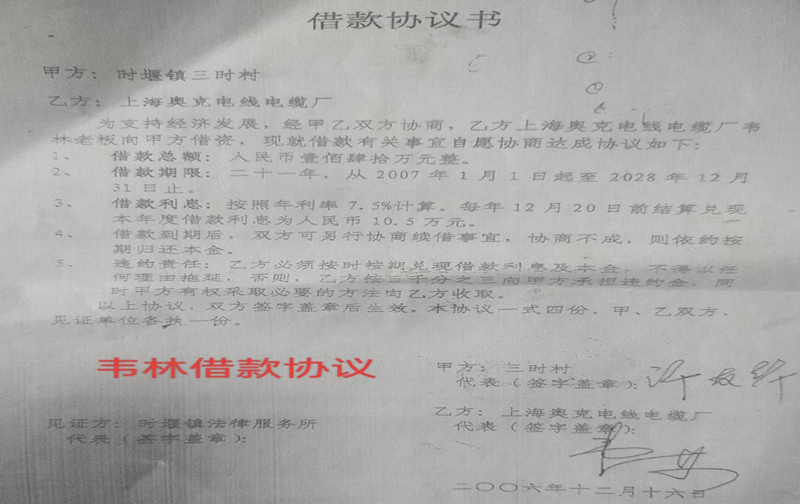 借款协议书
甲方：时堰镇三时村
乙方：上海奥克电线电缆厂
为支持经济发展，经甲乙双方协商，乙方上海奥克电线电缆厂韦
林老板向甲方借资，现就借款有关事宜自愿协商达成协议如下：
1、 借款总额：人民币壹佰肆拾万元整。
2、 借款期限：二十一年，从 2007 年 1 月 1 日起至 2028 年 12 月
31 日止。
3、 借款利息：按照年利率 7.5%计算。每年 12 月 20 日前结算兑现
本年度借款利息为人民币 10.5 万元。
4、 借款到期后，双方可另行协商续借事宜，协商不成，则依约按
期归还本金。
5、 违约责任：乙方必须按时按期兑现借款利息及本金，不得以任
何理由拖延，否则，乙方按三千分之三向甲方承担违约金，同
时甲方有权采取必要的方法向乙方收取。
以上协议，双方签字盖章后生效。本协议一式四份，甲、乙双方、
见证单位各执一份。
韦林借款协议
甲方：三时村
代表（签字盖章）：
乙方：上海奥克电线电缆厂
代表（签字盖章）：
见证方：时堰镇法律服务所
代表（签字盖章）：
二〇〇六年十二月十六日